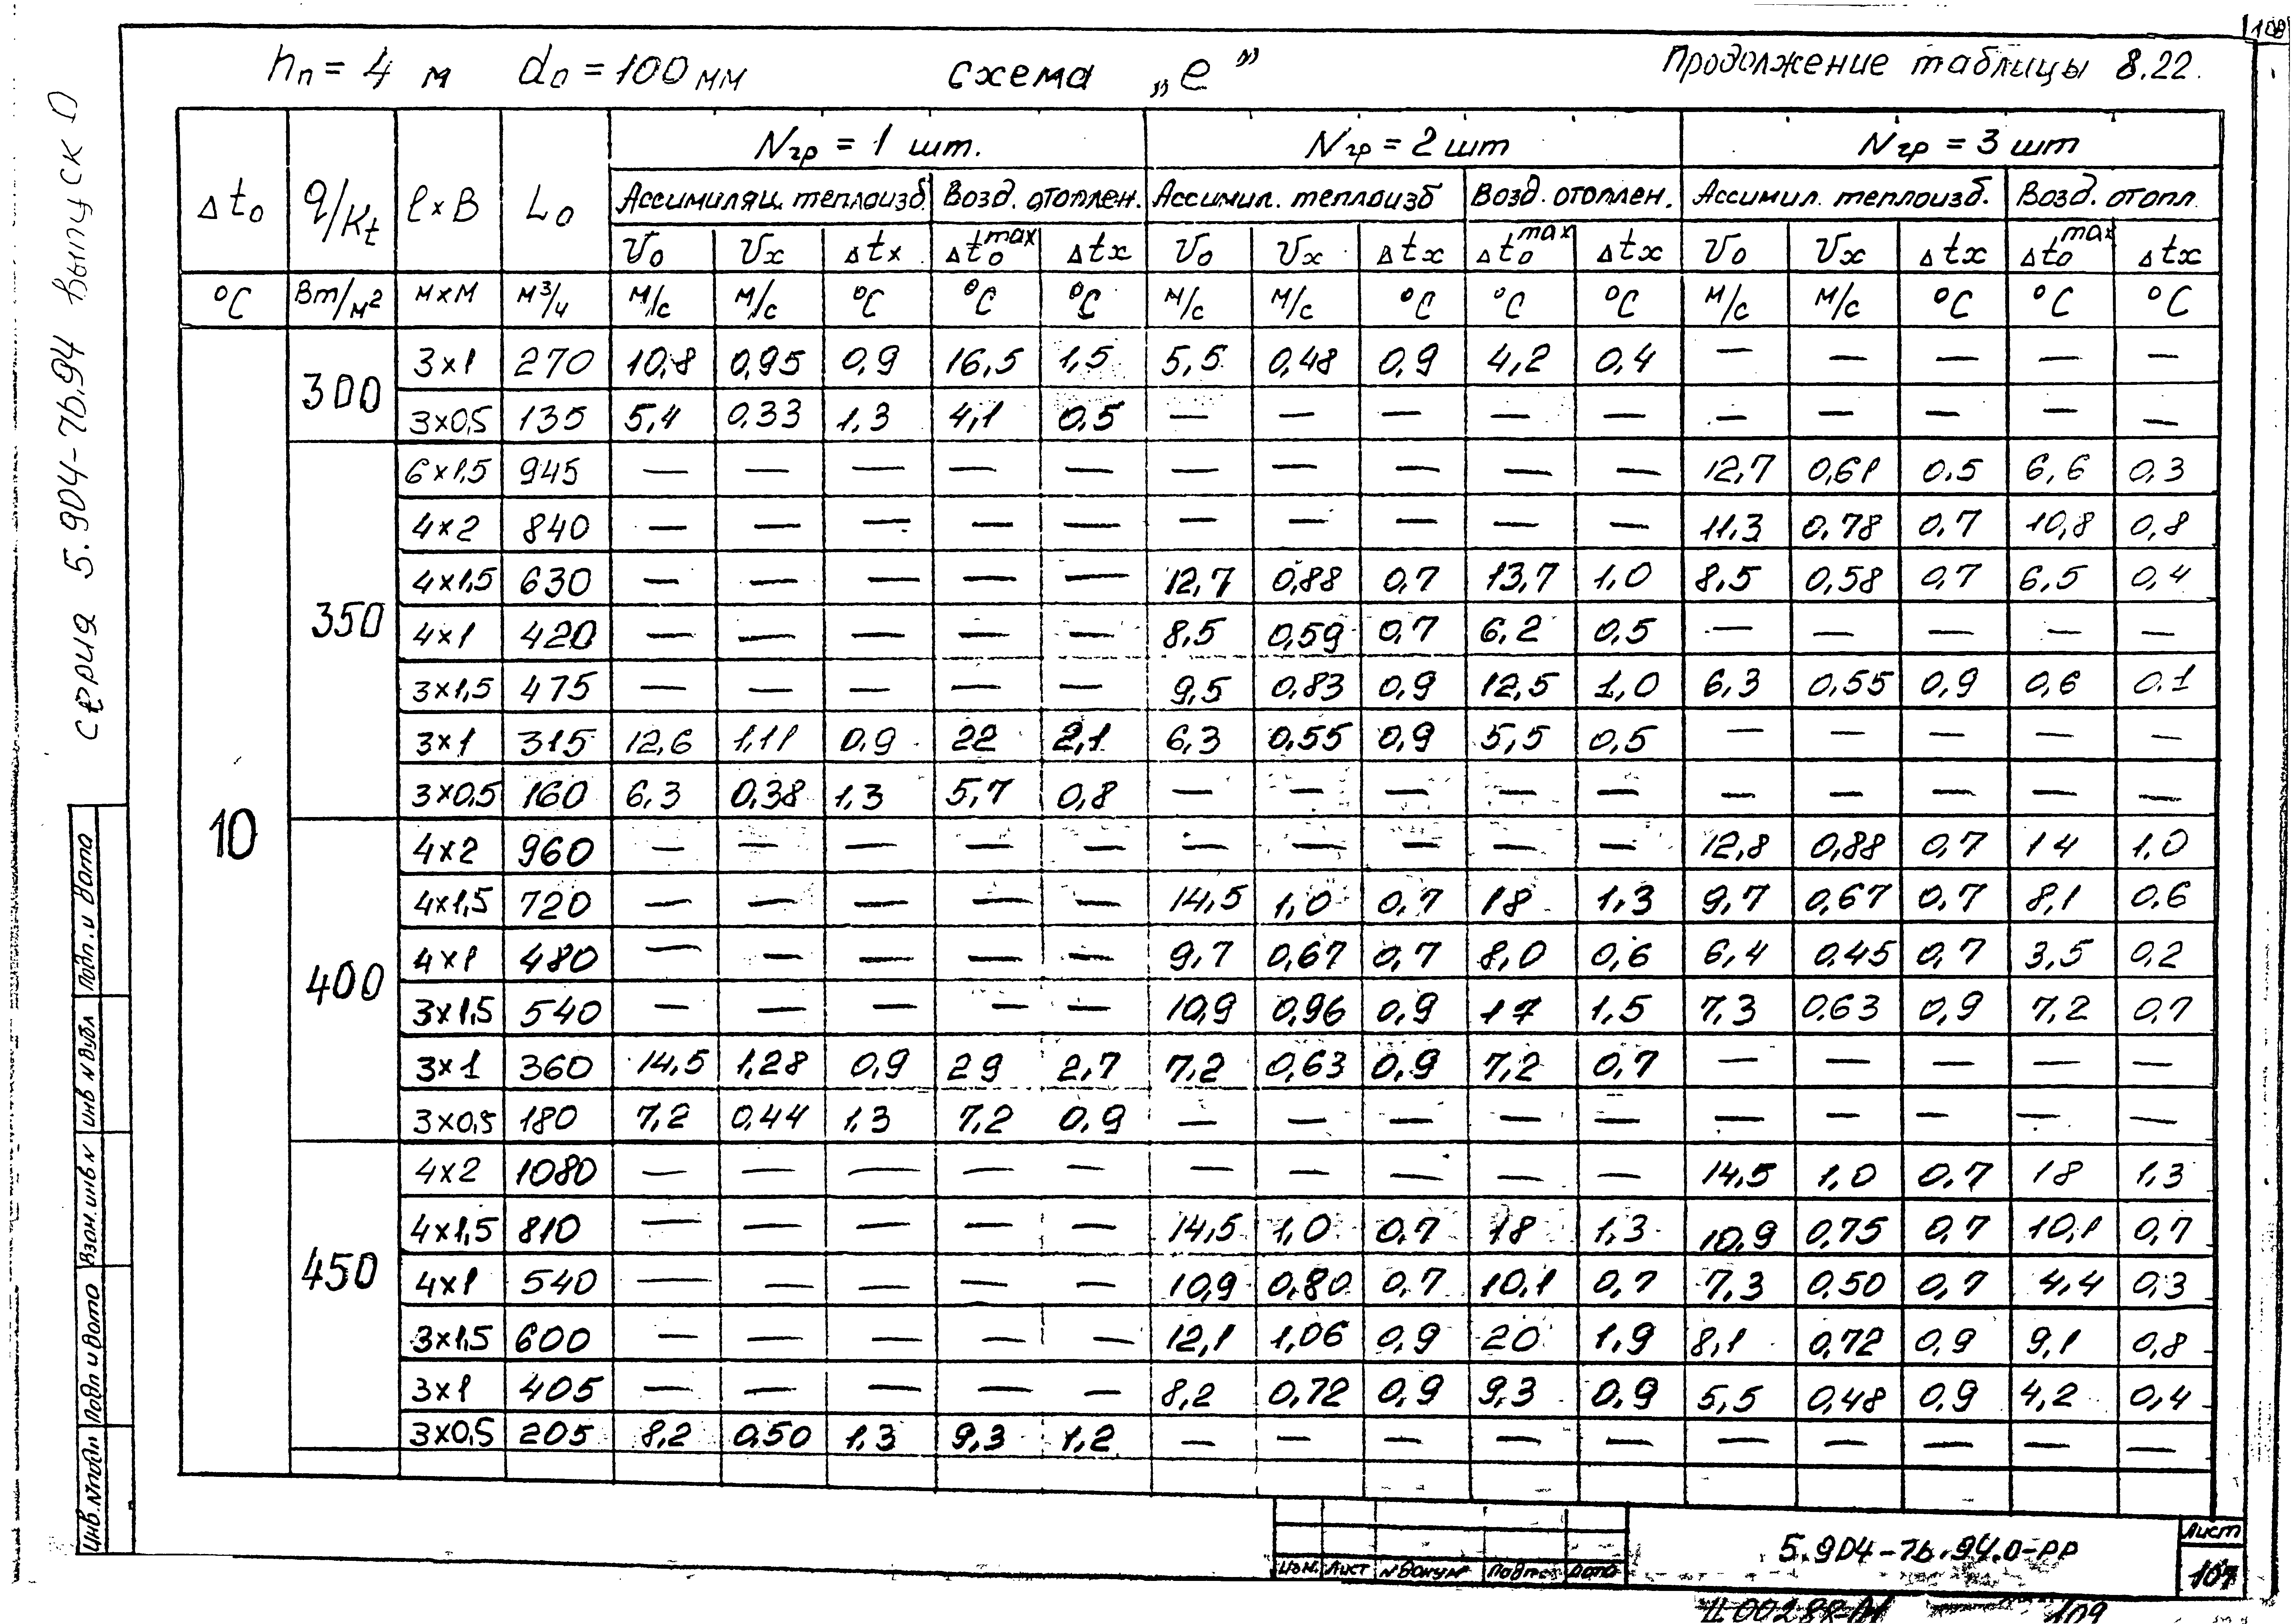 108
hп = 4 м d₀ = 100 мм схема „е” Продолжение таблицы 8.22.
Серия 5.904-7b.94 выпуск 0
Δt₀ q/Kt ℓ×B L₀ Nгр = 1 шт. Nгр = 2 шт Nгр = 3 шт
Ассимиляц. теплоизб. Возд. отоплен. Ассимил. теплоизб Возд. отоплен. Ассимил. теплоизб. Возд. отопл.
V₀ Vx Δtx Δt₀max Δtx V₀ Vx Δtx Δt₀max Δtx V₀ Vx Δtx Δt₀max Δtx
°C Вт/м² м×м м³/ч м/с м/с °C °C °C м/с м/с °C °C °C м/с м/с °C °C °C
10
300
3×1 270 10,8 0,95 0,9 16,5 1,5 5,5 0,48 0,9 4,2 0,4 — — — — —
3×0,5 135 5,4 0,33 1,3 4,1 0,5 — — — — — — — — — —
350
6×1,5 945 — — — — — — — — — — 12,7 0,61 0,5 6,6 0,3
4×2 840 — — — — — — — — — — 11,3 0,78 0,7 10,8 0,8
4×1,5 630 — — — — — 12,7 0,88 0,7 13,7 1,0 8,5 0,58 0,7 6,5 0,4
4×1 420 — — — — — 8,5 0,59 0,7 6,2 0,5 — — — — —
3×1,5 475 — — — — — 9,5 0,83 0,9 12,5 1,0 6,3 0,55 0,9 0,6 0.1
3×1 315 12,6 1,11 0,9 22 2,1 6,3 0,55 0,9 5,5 0,5 — — — — —
3×0,5 160 6,3 0,38 1,3 5,7 0,8 — — — — — — — — — —
400
4×2 960 — — — — — — — — — — 12,8 0,88 0,7 14 1,0
4×1,5 720 — — — — — 14,5 1,0 0,7 18 1,3 9,7 0,67 0,7 8,1 0,6
4×1 480 — — — — — 9,7 0,67 0,7 8,0 0,6 6,4 0,45 0,7 3,5 0,2
3×1,5 540 — — — — — 10,9 0,96 0,9 17 1,5 7,3 0,63 0,9 7,2 0,7
3×1 360 14,5 1,28 0,9 29 2,7 7,2 0,63 0,9 7,2 0,7 — — — — —
3×0,5 180 7,2 0,44 1,3 7,2 0,9 — — — — — — — — — —
450
4×2 1080 — — — — — — — — — — 14,5 1,0 0,7 18 1,3
4×1,5 810 — — — — — 14,5 1,0 0,7 18 1,3 10,9 0,75 0,7 10,1 0,7
4×1 540 — — — — — 10,9 0,80 0,7 10,1 0,7 7,3 0,50 0,7 4,4 0,3
3×1,5 600 — — — — — 12,1 1,06 0,9 20 1,9 8,1 0,72 0,9 9,1 0,8
3×1 405 — — — — — 8,2 0,72 0,9 9,3 0,9 5,5 0,48 0,9 4,2 0,4
3×0,5 205 8,2 0,50 1,3 9,3 1,2 — — — — — — — — — —
Инв.№подл Подп и дата Взам.инв N Инв N дубл Подп. и дата
Изм. Лист N докум Подпс Дата
5.904-7b.94.0-РР
Лист
107
Ц00288-01 109